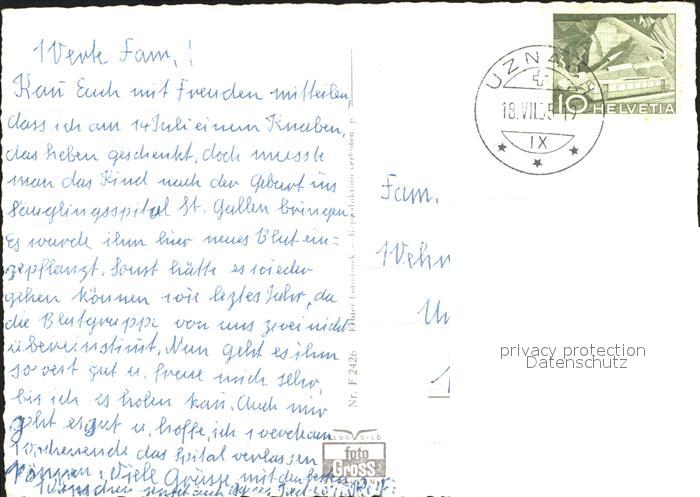 Werte Fam.!
Kan Euch mit Freuden mitteilen,
dass ich am 14 Juli einem Knaben,
das Leben geschenkt, doch musste
man das Kind nach der Geburt ins
Säuglingsspital St. Gallen bringen
Es wurde ihm hier neues Blut ein=
gepflanzt. Sonst hätte es wieder
gehen können wie leztes Jahr, da
die Blutgruppe von uns zwei nicht
übereinstimt. Nun geht es ihm
soweit gut u. freue mich sehr,
bis ich es holen kan. Auch mir
geht es gut u. hoffe, ich werde am
Wochenende das Spital verlassen
können. Viele Grüsse mit den besten
Wünschen
Nr. F 2426 Echter Fotodruck — Reproduktion verboten
FLUGBILD
foto
GROSS
UZNACH
18.VII.
IX
10 HELVETIA
Fam.
Wehr
privacy protection
Datenschutz